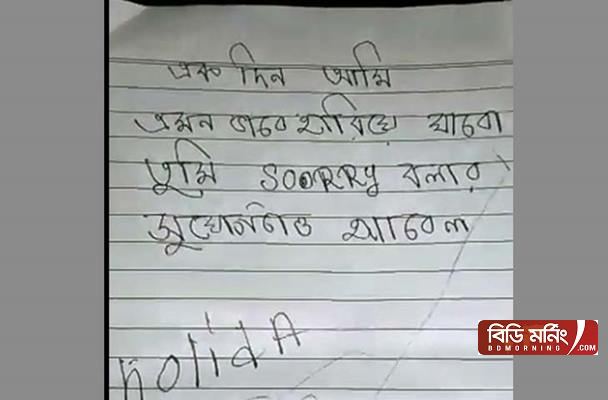 এক দিন আমি
এমন ভাবে হারিয়ে যাবো
তুমি SOORRy বলার
সুযোগটাও পাবেনা
nolidA
বিডি মর্নিং
BDMORNING .COM